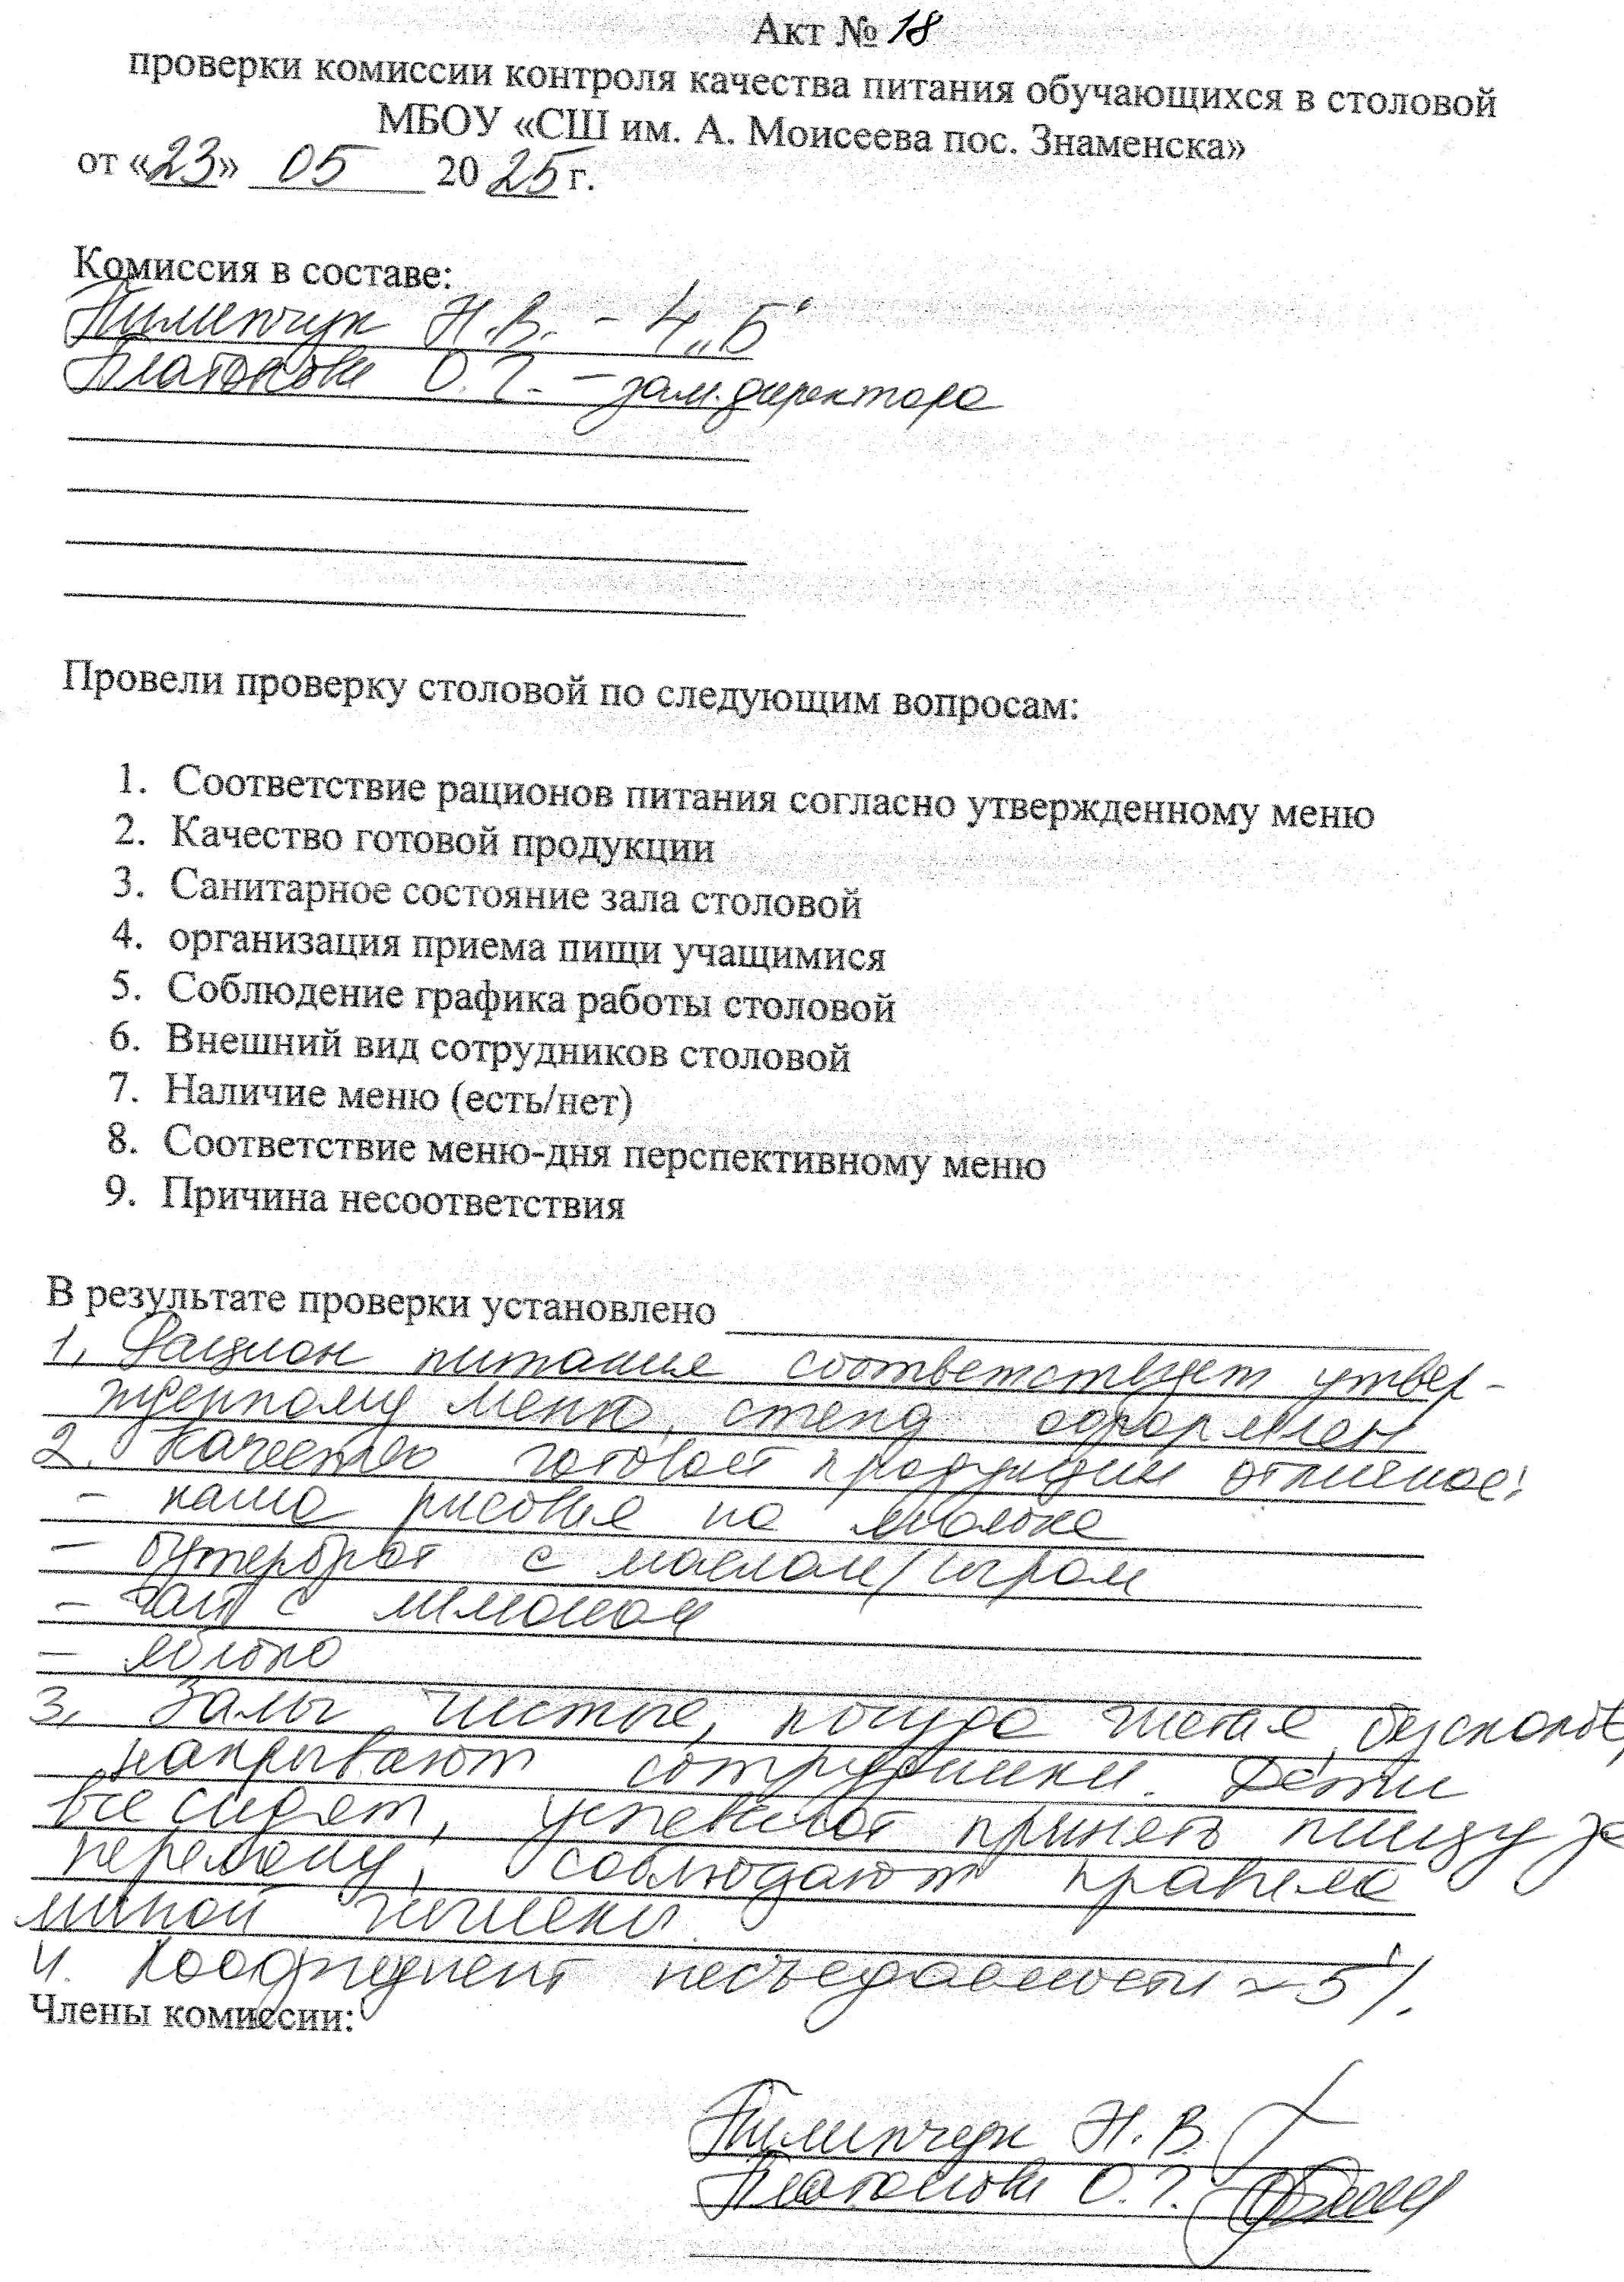 Акт № 18
проверки комиссии контроля качества питания обучающихся в столовой
МБОУ «СШ им. А. Моисеева пос. Знаменска»
от «23» 05 2025 г.
Комиссия в составе:
Пилипчук Н.В. - 4 „Б"
Платонова О.Г. - зам. директора
Провели проверку столовой по следующим вопросам:
1. Соответствие рационов питания согласно утвержденному меню
2. Качество готовой продукции
3. Санитарное состояние зала столовой
4. организация приема пищи учащимися
5. Соблюдение графика работы столовой
6. Внешний вид сотрудников столовой
7. Наличие меню (есть/нет)
8. Соответствие меню-дня перспективному меню
9. Причина несоответствия
В результате проверки установлено
1. Рацион питания соответствует утвер-
жденному меню, стенд оформлен
2. Качество готовой продукции отличное:
- каша рисовая на молоке
- бутерброд с маслом/сыром
- чай с лимоном
- яблоко
3. Залы чистые, посуда чистая, без сколов,
накрывают сотрудники. Дети
все сидят, успевают принять пищу за
перемену, соблюдают правила
личной гигиены.
4. Коэффициент несъедаемости ~ 5%.
Члены комиссии:
Пилипчук Н.В.
Платонова О.Г.